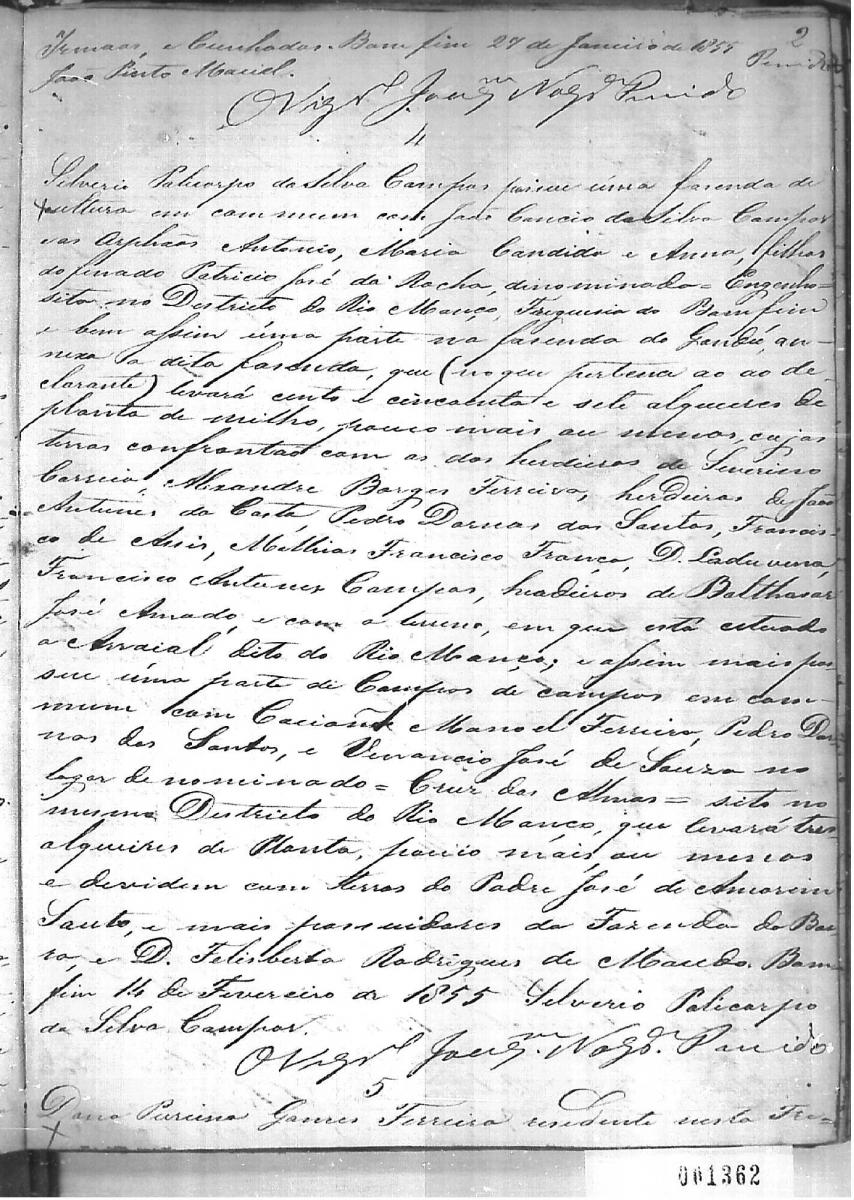 2
Irmaos, e Cunhados. Bom fim 27 de Janeiro de 1855
João Pinto Maciel. Penido
O Vigr.º Joaq.m Nog.ra Penido
4
Silverio Policarpo da Silva Campos possue úma fasenda de
cultura em commum com João Cancio da Silva Campos
e os Orphãos Antonio, Maria Candida e Anna, filhos
do finado Patricio José da Rocha, dinominada = Engenho=
sita no Destricto do Rio Manço, Freguesia do Bom fim
e bem assim úma parte na fasenda do Gandú, an-
nexa a dita fasenda, que (no que pertence ao ao de-
clarante) levará cento e cincoenta e sete alqueires de
planta de milho, pouco mais ou menos, cujas
terras confrontão com as dos herdeiros de Severino
Correia, Alexandre Borges Ferreira, herdeiros de João
Antunes da Costa, Pedro Dornas dos Santos, Francis-
co de Assis, Mathias Francisco França, D. Laduvina,
Francisco Antunes Campos, herdeiros de Balthasar
José Amado, e com o terreno, em que está cituado
o Arraial dito do Rio Manço; e assim mais pos-
sue úma parte de Campos de campos em com-
mum com Caciano Manoel Ferreira, Pedro Dor-
nas dos Santos, e Venancio José de Souza no
lugar denominado = Cruz das Almas = sito no
mesmo Destricto do Rio Manço, que levará tres
alqueires de Planta, pouco mais, ou menos
e devidem com terras do Padre José de Amorim
Santo, e mais possuidores da Fazenda da Bar-
ra, e D. Felisberta Rodrigues de Macedo. Bom
fim 14 de Fevereiro de 1855 Silverio Policarpo
da Silva Campos.
O Vigr.º Joaq.m Nog.ra Penido
5
Dona Gomes Ferreira residente nesta Fre-
001362